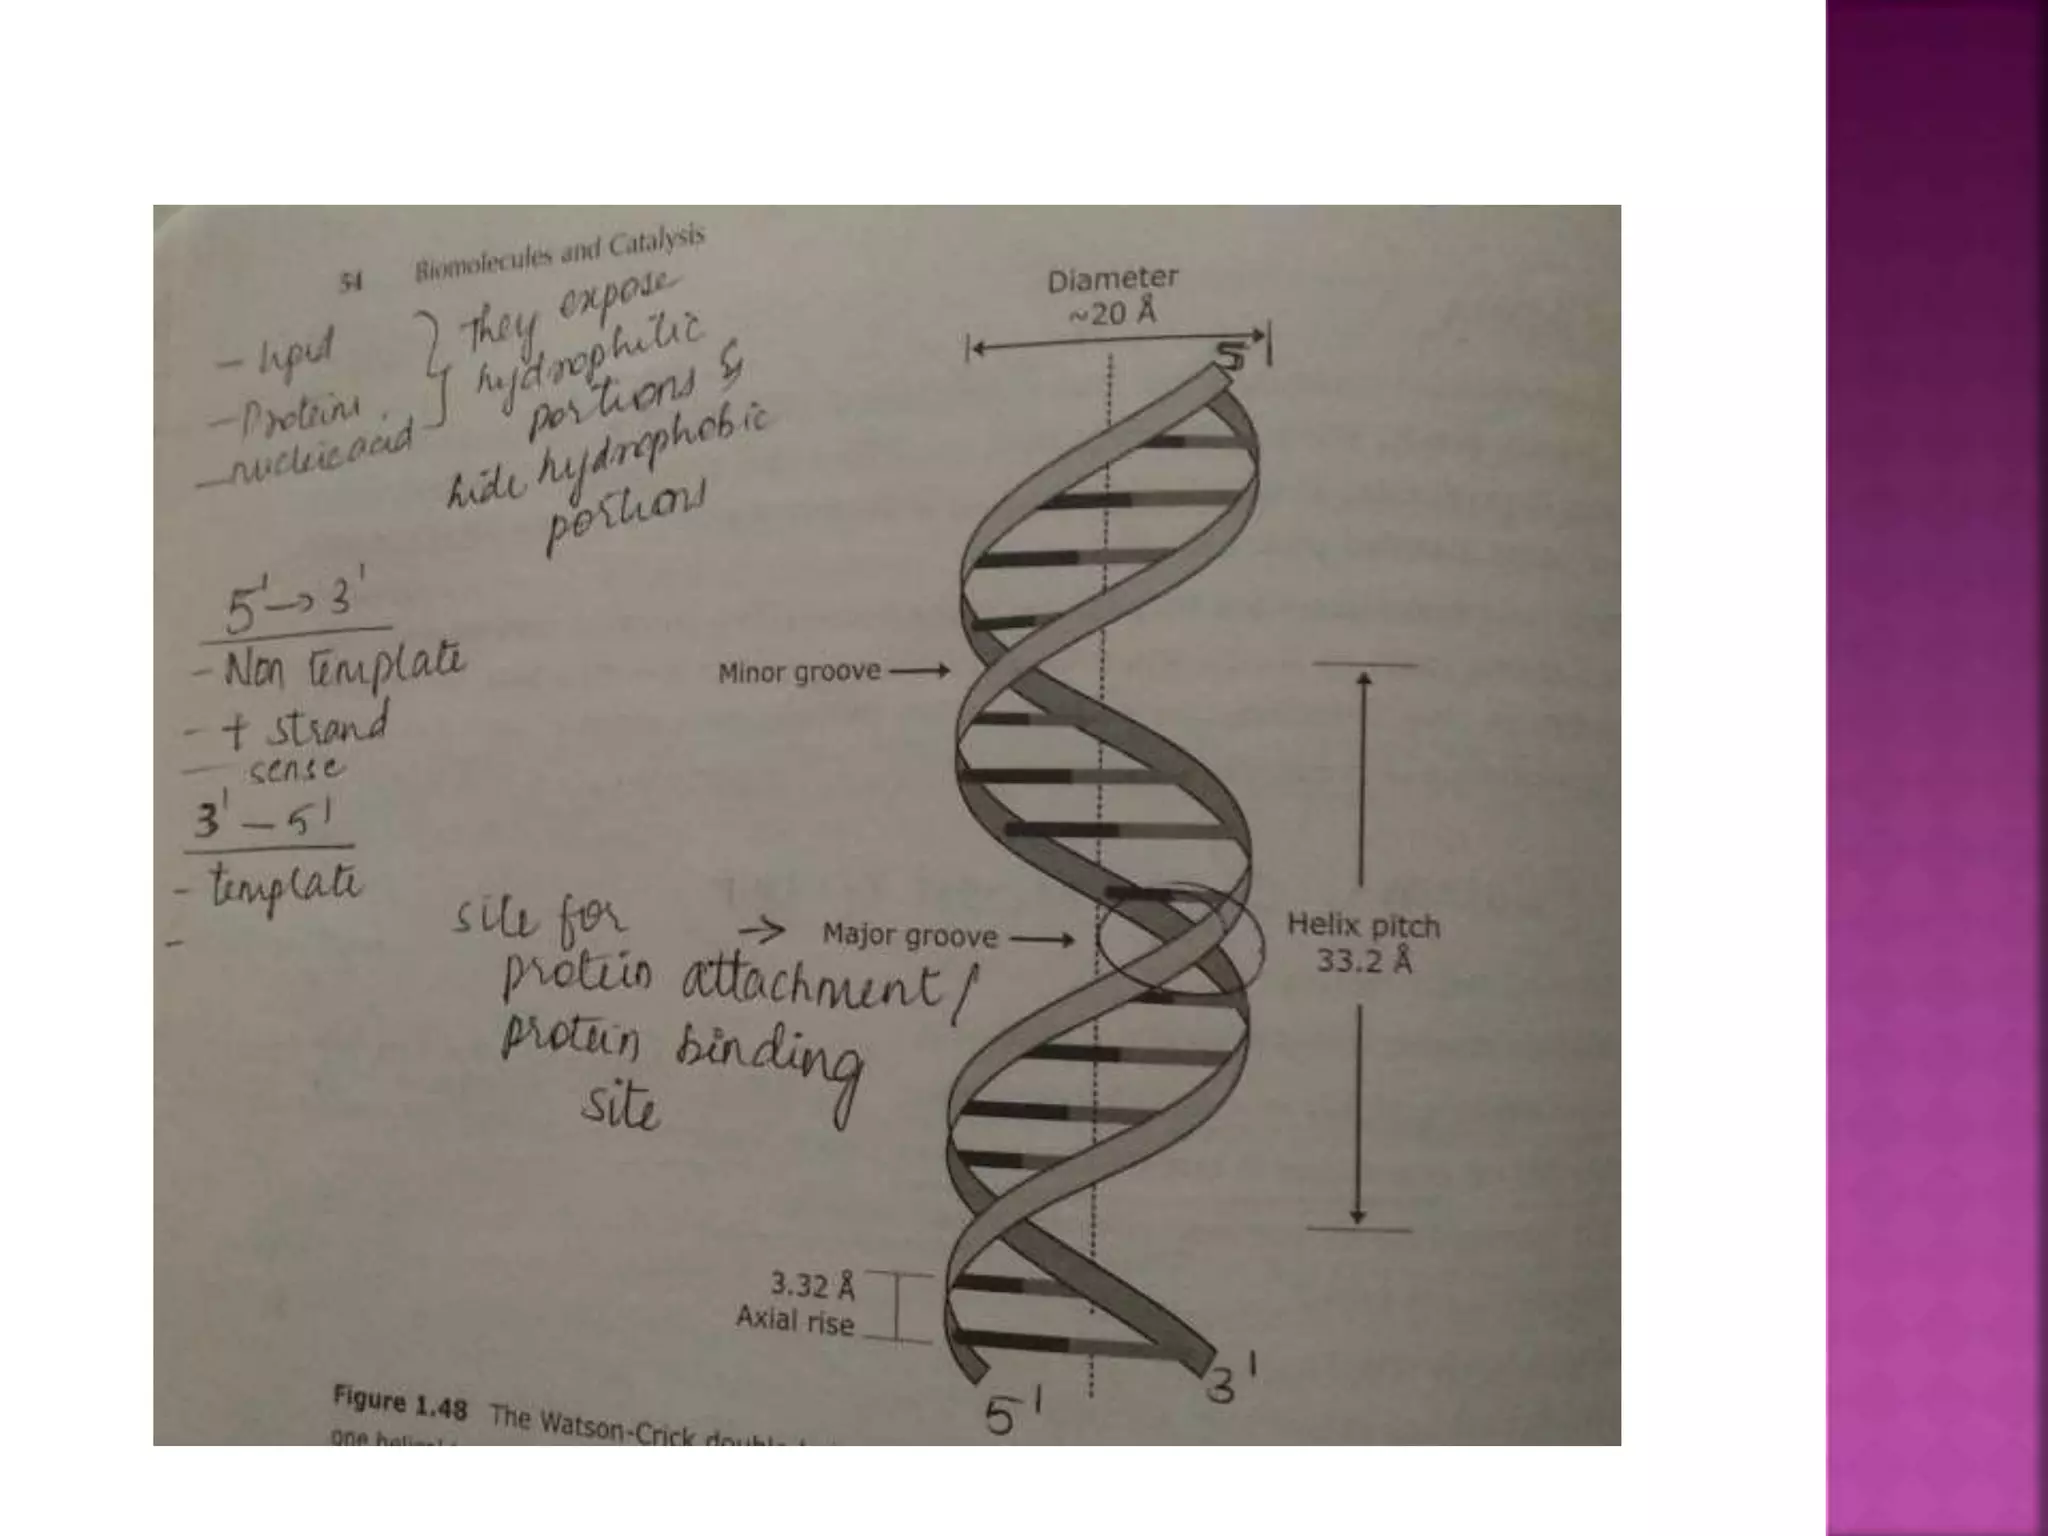 54 Biomolecules and Catalysis
- lipid
- Proteins
- nucleic acid
They expose
hydrophilic
portions &
hide hydrophobic
portions
5' → 3'
- Non template
- + strand
- sense
3' – 5'
- template
-
site for
protein attachment /
protein binding
site
Diameter
~20 Å
5'
Minor groove
→ Major groove
Helix pitch
33.2 Å
3.32 Å
Axial rise
5'
3'
Figure 1.48 The Watson-Crick
one